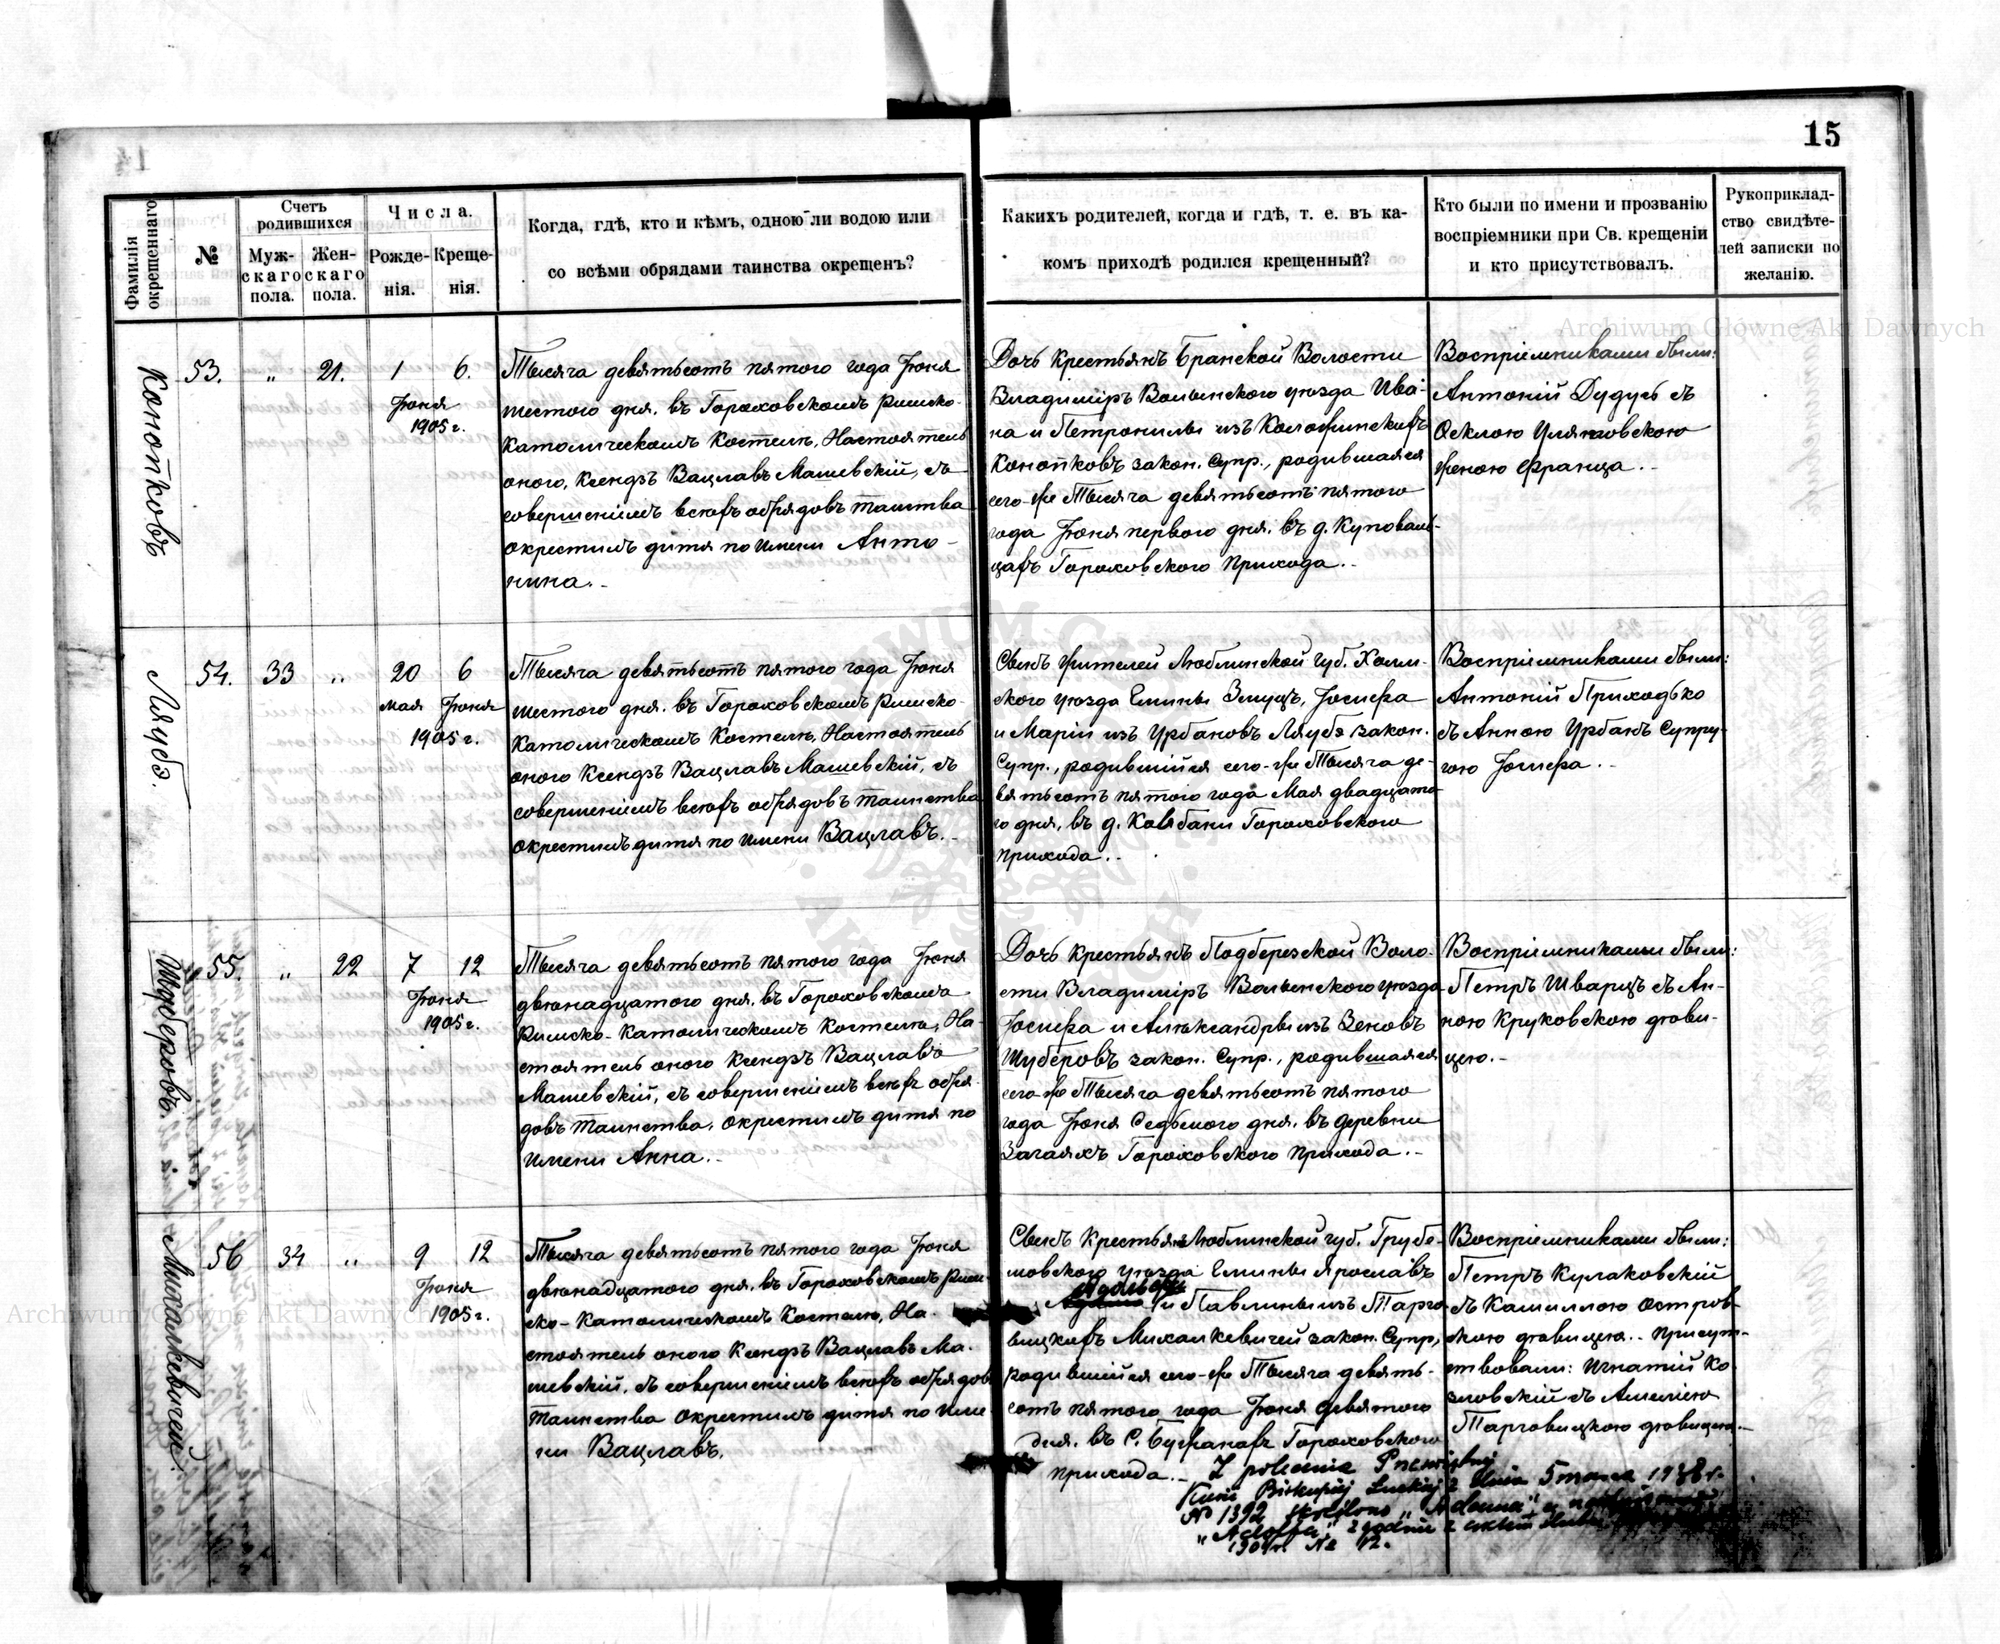 15
Фамилія окрещеннаго
№
Счетъ родившихся
Муж-
скаго
пола.
Жен-
скаго
пола.
Числа.
Рожде-
нія.
Креще-
нія.
Когда, гдѣ, кто и кѣмъ, одною ли водою или
со всѣми обрядами таинства окрещенъ?
Какихъ родителей, когда и гдѣ, т. е. въ ка-
комъ приходѣ родился крещенный?
Кто были по имени и прозванію
воспріемники при Св. крещеніи
и кто присутствовалъ.
Рукоприклад-
ство свидѣте-
лей записки по
желанію.
Archiwum Główne Akt Dawnych
Конопковъ
53. " 21. 1 6.
Іюня
1905 г.
Тысяча девятьсотъ пятого года Іюня
шестого дня, въ Гороховскомъ Римско-
Католическомъ Костелѣ, Настоятель
оного, Ксендзъ Вацлавъ Машевскій, съ
совершеніемъ всѣхъ обрядовъ таинства
окрестилъ дитя по имени Анто-
нина.
Дочь крестьянъ Бранской Волости
Владиміръ Волынского уѣзда Ива-
на и Петронилы изъ
Конопковъ закон. супр., родившаяся
сего-же Тысяча девятьсотъ пятого
года Іюня первого дня, въ д. Куповаль-
цахъ Гороховского Прихода.
Воспріемниками были:
Антоній Дудусь съ
женою Франца.
Ляубэ.
54. 33 " 20 6
мая Іюня
1905 г.
Тысяча девятьсотъ пятого года Іюня
шестого дня, въ Гороховскомъ Римско-
Католическомъ Костелѣ, Настоятель
оного Ксендзъ Вацлавъ Машевскій, съ
совершеніемъ всѣхъ обрядовъ таинства
окрестилъ дитя по имени Вацлавъ.
Сынъ жителей Люблинской губ. Холм-
ского уѣзда Гмины Іосифа
и Маріи изъ Урбановъ Ляубэ закон.
Супр., родившійся сего-же Тысяча де-
вятьсотъ пятого года Мая двадцато-
го дня, въ д. Гороховского
прихода.
Воспріемниками были:
Антоній Приходько
съ Анною Урбанъ супру-
гою Іосифа.
Шуберовъ
55. " 22 7 12
Іюня
1905 г.
Тысяча девятьсотъ пятого года Іюня
двѣнадцатого дня, въ Гороховскомъ
Римско-Католическомъ Костелѣ, На-
стоятель оного Ксендзъ Вацлавъ
Машевскій, съ совершеніемъ всѣхъ обря-
довъ таинства, окрестилъ дитя по
имени Анна.
Дочь крестьянъ Подберезской Воло-
сти Владиміръ Волынского уѣзда
Іосифа и Александры изъ Зеновъ
Шуберовъ закон. Супр., родившаяся
сего-же Тысяча девятьсотъ пятого
года Іюня Седьмого дня, въ деревни
Загаяхъ Гороховского прихода.
Воспріемниками были:
Петръ Шварцъ съ Ан-
ною Круковскою дѣви-
цею.
Михалкевичей
56 34 " 9 12
Іюня
1905 г.
Тысяча девятьсотъ пятого года Іюня
двѣнадцатого дня, въ Гороховскомъ Рим-
ско-Католическомъ Костелѣ, На-
стоятель оного Ксендзъ Вацлавъ Ма-
шевскій, съ совершеніемъ всѣхъ обрядовъ
таинства окрестилъ дитя по име-
ни Вацлавъ.
Сынъ Крестьянъ Люблинской губ. Грубе-
шовского уѣзда Гмины Ярославъ
Адольфа
и Павлины изъ Тарго-
вицкихъ Михалкевичей закон. Супр.,
родившійся сего-же Тысяча девять-
сотъ пятого года Іюня девятого
дня, въ с. Бужанахъ Гороховского
прихода.
Воспріемниками были:
Петръ Кулаковскій
съ Камиллою Остров-
скою дѣвицею. Присут-
ствовали: Игнатій Ко-
зловскій съ Амеліею
Тарговицкою дѣвицею.
Z polecenia
Kurii Biskupiej Łuckiej z dnia 5 marca 1938 r.
№ 1392 skreślono "Adama", a
"Adolfa", zgodnie z aktem ślubu
№ 12.
Archiwum Główne Akt Dawnych